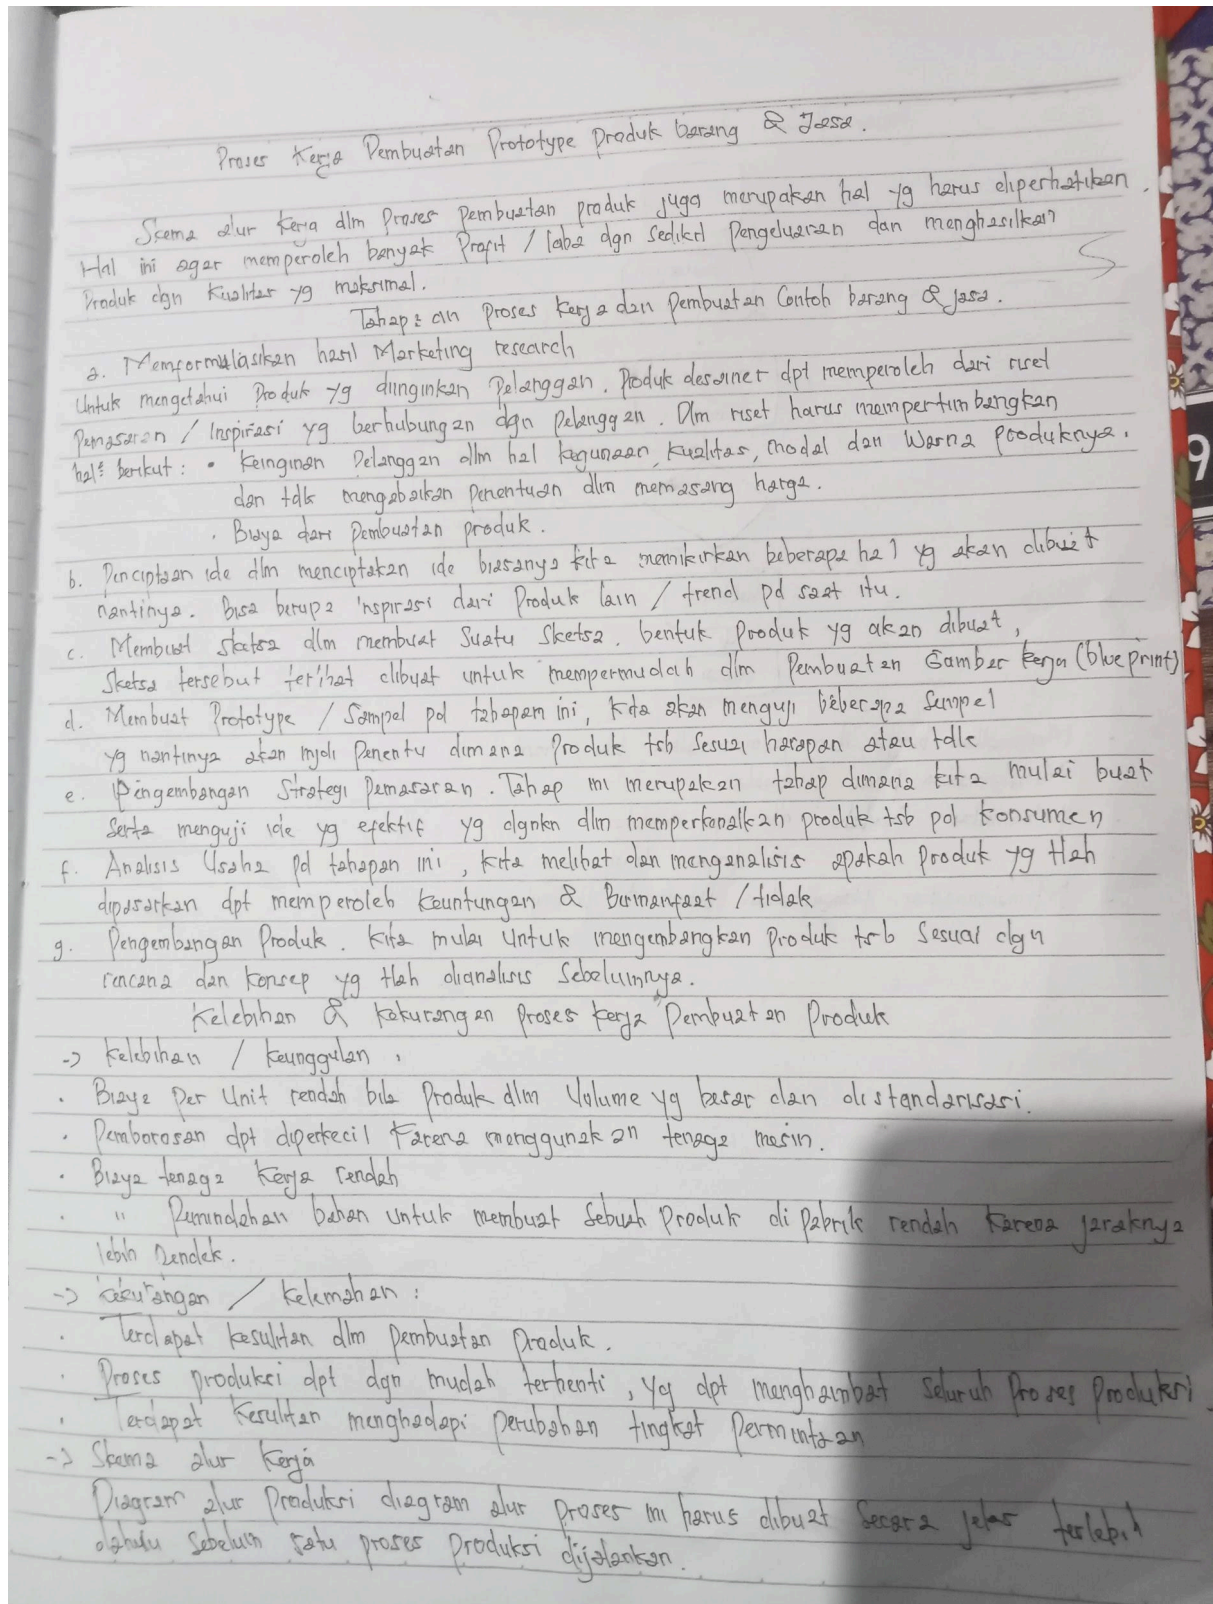 Proses Kerja Pembuatan Prototype Produk barang & Jasa.
Skema alur kerja dlm Proses pembuatan produk juga merupakan hal yg harus diperhatikan.
Hal ini agar memperoleh banyak Profit / laba dgn sedikit pengeluaran dan menghasilkan
Produk dgn kualitas yg maksimal.
Tahap² an proses kerja dan pembuatan Contoh barang & jasa.
a. Memformulasikan hasil Marketing research
Untuk mengetahui Produk yg diinginkan Pelanggan. Produk desainer dpt memperoleh dari riset
Pemasaran / Inspirasi yg berhubungan dgn Pelanggan. Dlm riset harus mempertimbangkan
hal² berikut : • Keinginan Pelanggan dlm hal kegunaan, kualitas, modal dan Warna produknya.
dan tdk mengabaikan penentuan dlm memasang harga.
• Biaya dari Pembuatan produk.
b. Penciptaan ide dlm menciptakan ide biasanya kita memikirkan beberapa hal yg akan dibuat
nantinya. Bisa berupa inspirasi dari Produk lain / trend pd saat itu.
c. Membuat sketsa dlm membuat Suatu Sketsa. bentuk Produk yg akan dibuat,
Sketsa tersebut terlihat dibuat untuk mempermudah dlm Pembuatan Gambar kerja (blueprint)
d. Membuat Prototype / Sampel pd tahapam ini, kita akan menguji beberapa Sempel
yg nantinya akan mjdi Penentu dimana Produk tsb Sesuai harapan atau tdk
e. Pengembangan Strategi Pemasaran. Tahap ini merupakan tahap dimana kita mulai buat
Serta menguji ide yg efektif yg dgnkn dlm memperkenalkan produk tsb pd konsumen
f. Analisis Usaha pd tahapan ini, kita melihat dan menganalisis apakah Produk yg tlah
dipasarkan dpt memperoleh keuntungan & Bermanfaat / tidak
g. Pengembangan Produk. Kita mulai Untuk mengembangkan Produk tsb Sesuai dgn
rencana dan konsep yg tlah dianalisis Sebelumnya.
Kelebihan & kekurangan proses kerja Pembuatan Produk
-> kelebihan / keunggulan :
• Biaya Per Unit rendah bila Produk dlm Volume yg besar dan distandarisasi.
• Pemborosan dpt diperkecil karena menggunakan tenaga mesin.
• Biaya tenaga kerja rendah
• " Pemindahan bahan untuk membuat Sebuah Produk di Pabrik rendah karena jaraknya
lebih Pendek.
-> kekurangan / kelemahan :
• Terdapat kesulitan dlm pembuatan Produk.
• Proses produksi dpt dgn mudah terhenti, yg dpt menghambat Seluruh Proses Produksi.
• Terdapat kesulitan menghadapi perubahan tingkat Permintaan
-> Skema alur kerja
Diagram alur Produksi diagram alur proses ini harus dibuat Secara jelas terlebih
dahulu Sebelum satu proses Produksi dijalankan.